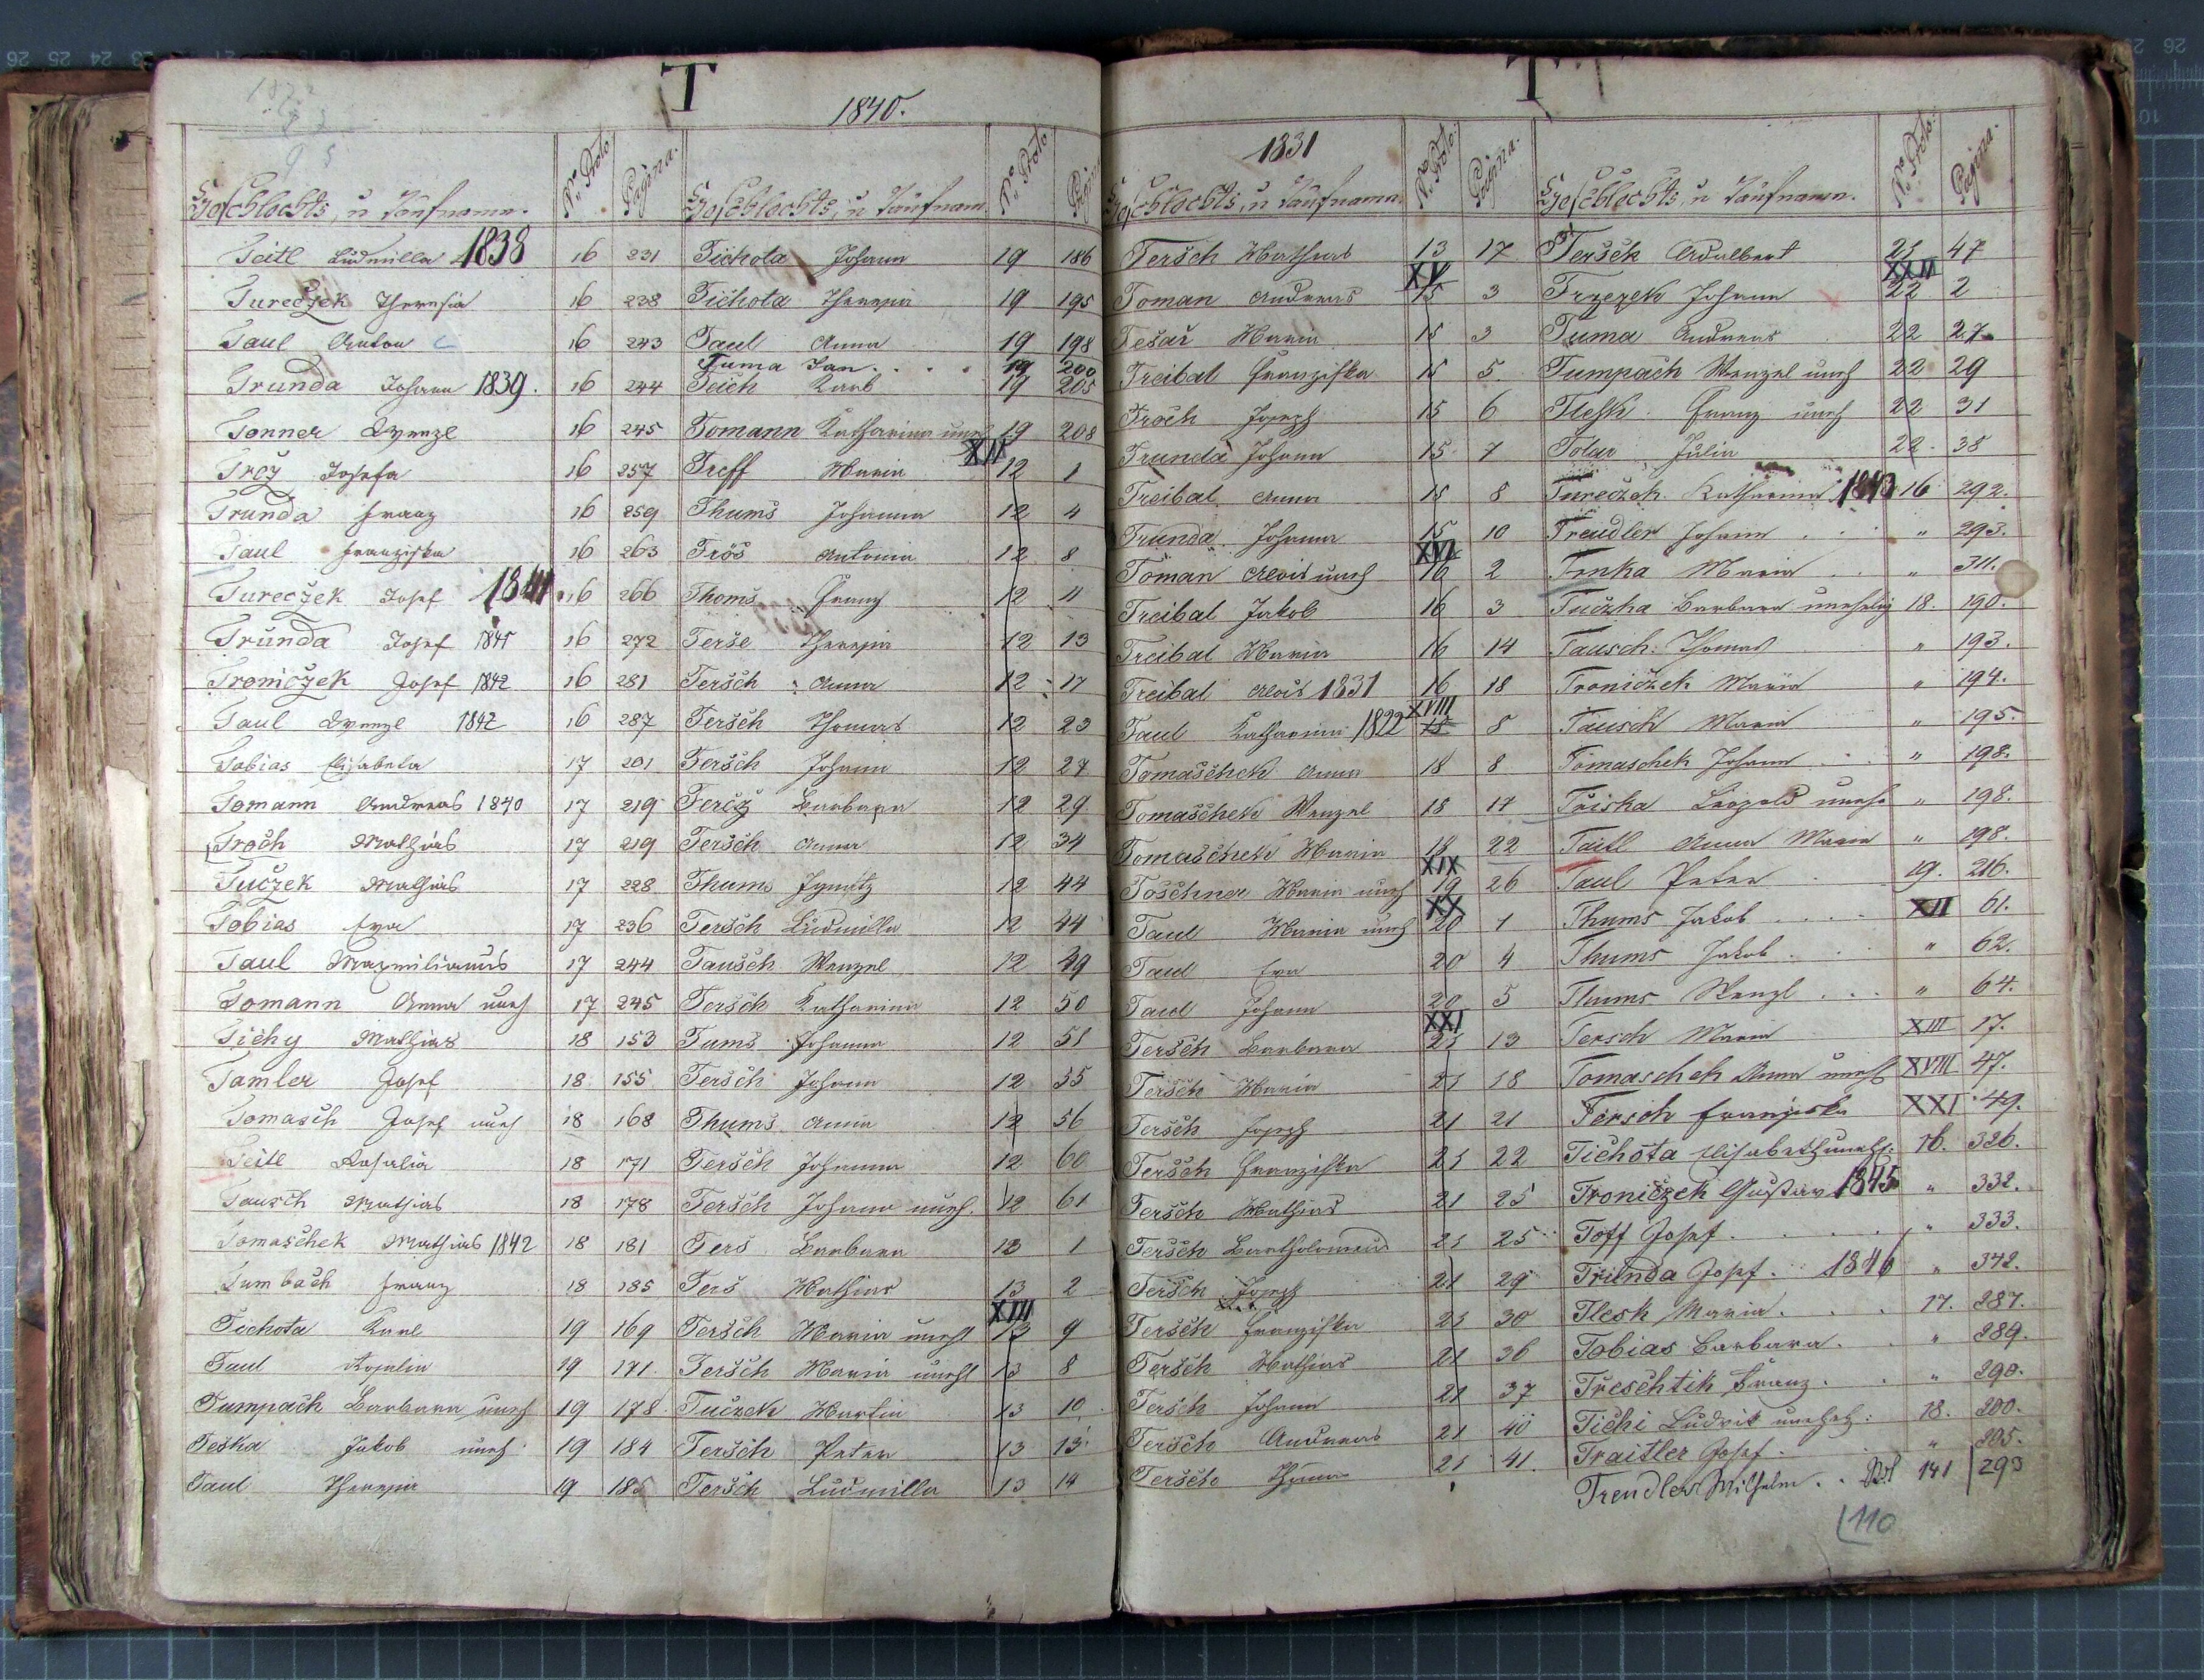 T
1840.
Geschlechts, u Taufname.
No. Proto.
Pagina.
Geschlechts, u Taufnam
No. Proto
Teitl Ludmilla 1838 16 231
Tureczek Theresia 16 238
Taul Anton 16 243
Trunda Johann 1839. 16 244
Tonner Wenzl 16 245
Trčz Josefa 16 257
Trunda Franz 16 259
Taul Franziska 16 263
Tureczek Josef 16 266
Trunda Josef 1841 16 272
Troniczek Josef 1842 16 281
Taul Wenzl 1842 16 287
Tobias Elisabeta 17 201
Tomann Andreas 1840 17 219
Troch Mathias 17 219
Tuczek Mathias 17 228
Tobias Eva 17 236
Taul Maxmilianus 17 244
Tomann Anna uneh 17 245
Tichy Mathias 18 153
Tamler Josef 18 155
Tomasch Josef uneh 18 168
Teitl Rosalia 18 171
Tausch Mathias 18 178
Tomaschek Mathias 1842 18 181
Tumbach Franz 18 185
Tichota Karl 19 169
Taul Rosalia 19 171
Tumpach Barbara uneh 19 178
Teska Jakob uneh 19 184
Taul Theresia 19 185
Tichota Johann 19 186
Tichota Theresia 19 195
Taul Anna 19 198
Tuma Jan . . . 19 200
Teich Karl 19 205
Tomann Katharina uneh 19 208
XII
Treff Maria 12 1
Thums Johanna 12 4
Trös Antonia 12 8
Thoms Franz 12 11
Terše Theresia 12 13
Tersch Anna 12 17
Tersch Thomas 12 23
Tersch Johann 12 27
Tercz Barbara 12 29
Tersch Anna 12 34
Thums Ignatz 12 44
Tersch Ludmilla 12 44
Tausch Wenzel 12 49
Tersch Katharina 12 50
Tums Johanna 12 51
Tersch Johann 12 55
Thums Anna 12 56
Tersch Johanna 12 60
Tersch Johann uneh. 12 61
Ters Barbara 13 1
Ters Mathias 13 2
XIII
Tersch Maria unehl 13 9
Tersch Maria unehl 13 8
Tuczek Martin 13 10
Tersch Peter 13 13
Tersch Ludmilla 13 14
T
1831
Geschlechts, u Taufname
No. Proto.
Pagina.
Geschlechts, u Taufnamen.
No. Proto.
Pagina.
Tersch Mathias 13 17
XV
Toman Andreas 15 3
Tesař Maria 15 3
Treibal Franziska 15 5
Troch Joseph 15 6
Trunda Johann 15 7
Treibal Anna 15 8
Trunda Johanna 15 10
XVI
Toman Alois uneh 16 2
Treibal Jakob 16 3
Treibal Maria 16 14
Treibal Alois 1831 16 18
XVIII
Taul Katharina 1822 18 8
Tomaschek Anna 18 8
Tomaschek Wenzel 18 17
Tomaschek Maria 18 22
XIX
Toschner Maria uneh 19 26
XX
Taul Maria uneh 20 1
Taul Eva 20 4
Taul Johann 20 5
XXI
Tersch Barbara 21 13
Tersch Maria 21 18
Tersch Joseph 21 21
Tersch Franziska 21 22
Tersch Mathias 21 25
Tersch Bartholomeus 21 25
Tersch Joseph 21 29
Tersch Franziska 21 30
Tersch Mathias 21 36
Tersch Johann 21 37
Tersch Andreas 21 40
Tersch 21 41
Tersch Adalbert 21 47
XXII
Trzezek Johann 22 2
Tuma Andreas 22 27
Tumpach Wenzel uneh 22 29
Tlesk Franz uneh 22 31
Tolar Julia 22 38
Tureczek Katharina 1843 16 292.
Treudler Johann . . " 293.
Trnka Maria . . " 311.
Tuczha Barbara unehelig 18. 190.
Tausch Thomas " 193.
Troniczek Maria " 194.
Tausch Maria " 195.
Tomaschek Johann . . " 198.
Leopold uneh " 198.
Taitl Anna Maria " 198.
Taul Peter 19. 216.
Thums Jakob . . . . XII 61.
Thums Jakob . . " 62.
Thums Wenzl . . . " 64.
Tersch Maria XIII 17.
Tomaschek Anna unehl XVIII 47.
Tersch Franziska XXI 49.
Tichota Elisabeth unehl. 16. 326.
Troniczek Gustav 1845 " 332.
Toff Josef . . . . " 333.
Trunda Josef. 1846 " 342.
Tlesk Maria . . . 17. 287.
Tobias Barbara . . " 289.
Treschtik Franz . . " 290.
Tichi Ludvik unehel: 18. 200.
Traitler Josef . . " 205.
Trendler Wilhelm . . 141 293
110